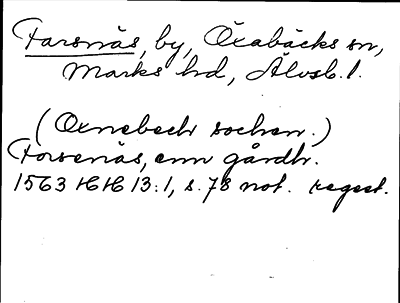 Farsnäs, by, Öxabäcks sn,
Marks hd, Älvsb. l.
(Oxnebech sochen.)
Forsenäs, enn gårdh.
1563 HH 13:1, s. 78 not. regest.